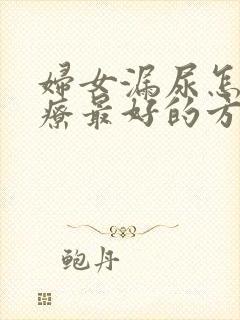 婦女漏尿怎
療最好的方
鲍丹